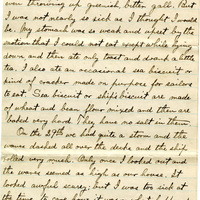 throwing up greenish, bitter gall. But
I was not nearly so sick as I thought I would
be. My stomach was so weak and upset by the
motion that I could not eat except while lying
down, and then ate only toast and drank a little
tea. I also ate an occasional sea biscuit or
kind of cracker made on purpose for sailors
to eat. Sea biscuit or ship's biscuit are made
of wheat and bean flour mixed and then are
baked very hard. They have no salt in them.
On the 29th we had quite a storm and the
waves dashed all over the decks and the ship
rolled very much. Only once I looked out and
the waves seemed as high as our house. It
looked awful scarey; but I was too sick at
the time to care